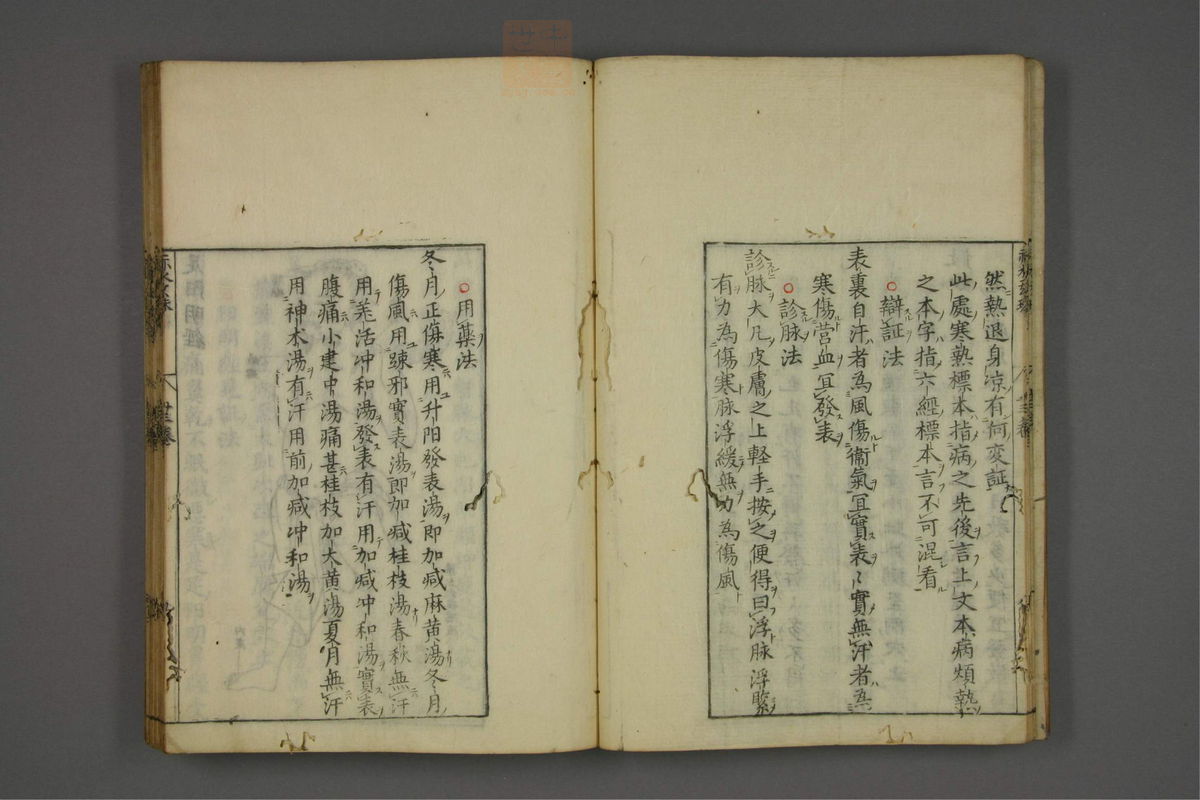 然熱退身凉有何変証
此處寒熱標本指病之先後言上文本病頻熱
之本字指六經標本言不可混看
○辯証法
表裏自汗者為風傷衛氣宜實表〻實無汗者為
寒傷營血宜發表
○診脉法
診脉大凡皮膚之上軽手按之便得曰浮脉浮緊
有力為傷寒脉浮緩無力為傷風
○用藥法
冬月正傷寒用升阳發表湯即加减麻黄湯冬月
傷風用踈邪實表湯即加减桂枝湯春秋無汗
用羌活冲和湯發表有汗用加减冲和湯實表
腹痛小建中湯痛甚桂枝加大黄湯夏月無汗
用神术湯有汗用前加减冲和湯